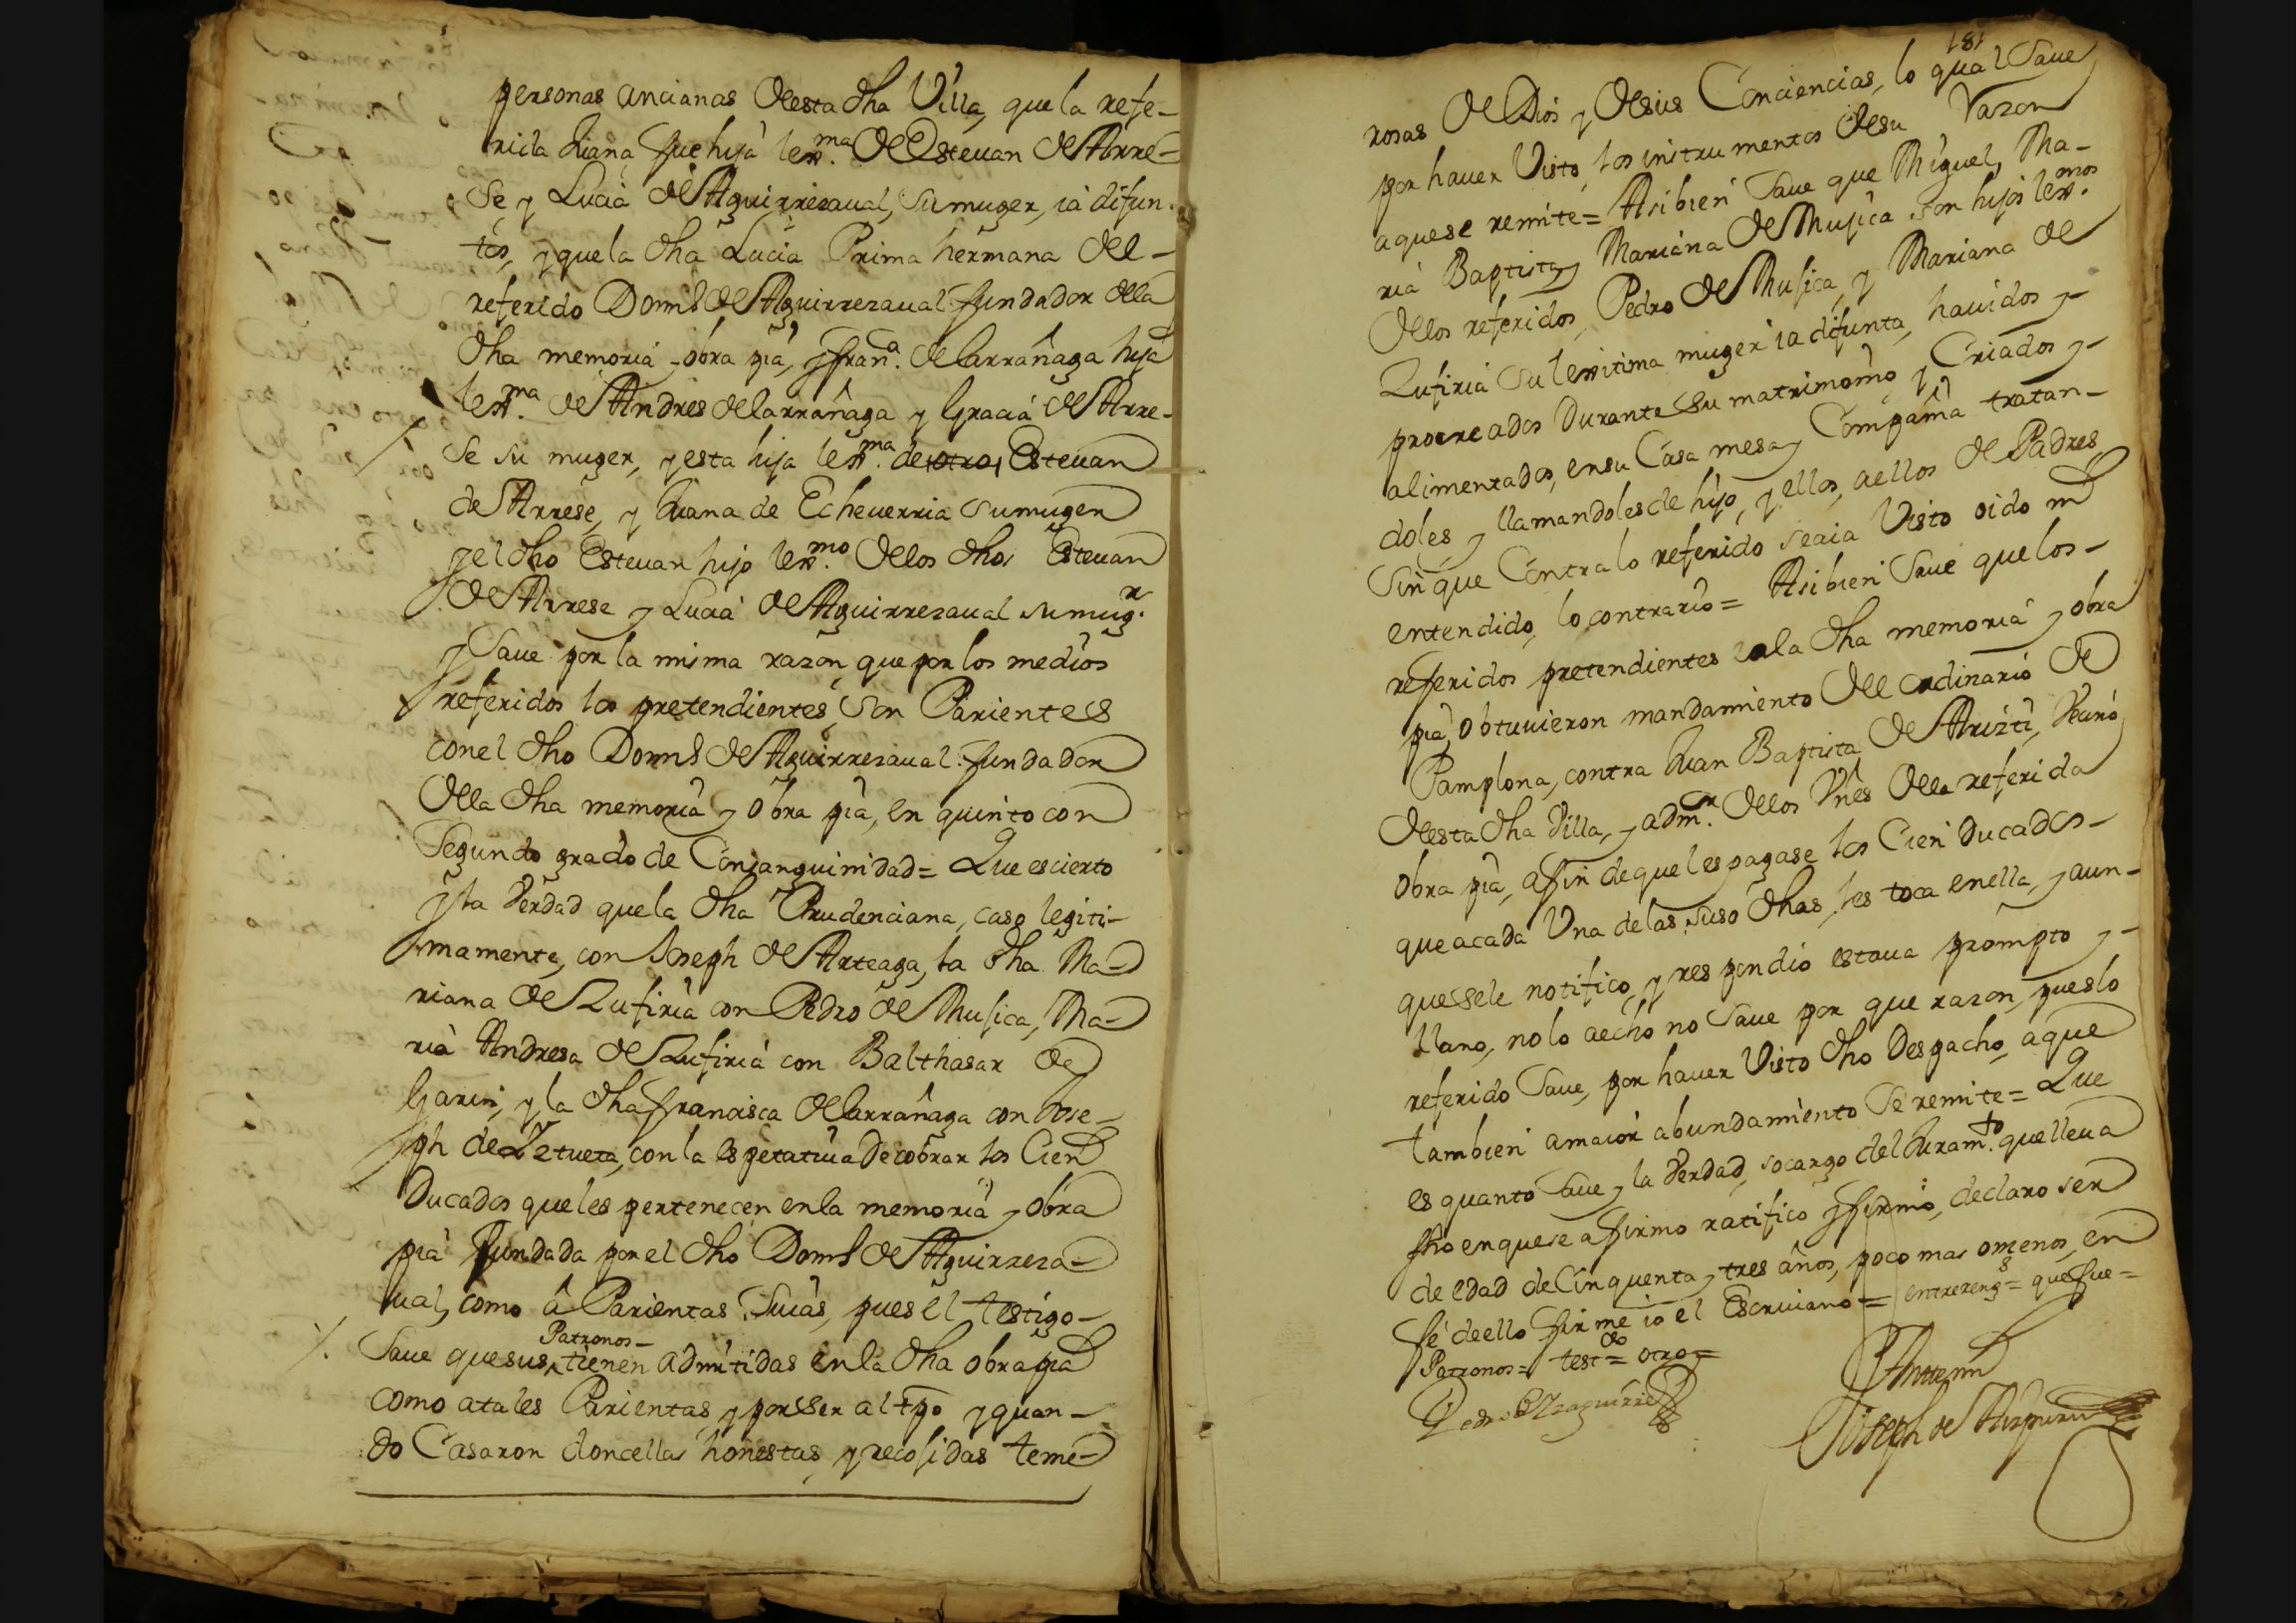 personas ancianas desta dha Villa, que la refe-
rida Juana fue hija lexma. de Estevan de Arre-
se y Lucia de Aguirrezaual, su muger, ia difun-
tos, y que la dha Lucia Prima hermana del-
referido Doms de Aguirrezaual fundador dela
dha memoria y obra pia, y frana. de Larrañaga hija
lexma. de Andres de Larrañaga y Gracia de Arre-
se su muger, y esta hija lexma. de otro, Estevan
de Arrese, y Juana de Echeverria su muger
y el dho Estevan hijo lexmo. de los dhos Estevan
de Arrese y Lucia de Aguirrezaual su mugr.
y Saue por la misma razon que por los medios
referidos los pretendientes son Parientes
con el dho Doms de Aguirrezaual fundador
de la dha memoria y obra pia, en quinto con
Segundo grado de Consanguinidad = Que es cierto
y la Verdad que la dha Prudenciana, caso legiti-
mamente, con Joseph de Arteaga, la dha Ma-
riana de Zufiria con Pedro de Musica, Ma-
ria Andresa de Zufiria con Balthasar de
Garin, y la dha francisca de Larrañaga con Jose-
ph de Ztueta, con la espetativa de cobrar los Cien
Ducados que les pertenecen en la memoria y obra
pia fundada por el dho Doms de Aguirreza-
ual, como â Parientas Suias, pues el testigo-
Patronos-
Saue que sus tienen admitidas en la dha obra pia
como a tales Parientas y por ser al tpo y quan-
do Casaron doncellas honestas y recojidas teme-
181
rosas de Dios y de sus Conciencias, lo qual Saue
por hauer Visto los instrumentos de su razon
a que se remite = Asibien Saue que Miguel, Ma-
ria Baptista y Mariana de Musica son hijos lexmos.
de los referidos, Pedro de Musica, y Mariana de
Zufiria su lexitima muger ia difunta, hauidos y-
procreados Durante su matrimonio y Criados y-
alimentados, en su Casa mesa y Compañia tratan-
doles y llamandoles de hijo, y ellos, a ellos de Padres
Sin que Contra lo referido se aia Visto oido ni
entendido, lo contrario = Asibien Saue que los-
referidos pretendientes a la dha memoria y obra
pia, obtuvieron mandamiento del ordinario de
Pamplona, contra Juan Baptista de Arizti, Vecino
desta dha Villa, y admr. de los Vnes dela referida
obra pia, afin de que les pagase los Cien Ducados-
que a cada Una de las suso dhas, les toca en ella, y aun-
que se le notifico, y respondio estaua prompto y-
llano, no lo a echo no Saue por que razon, pues lo
referido Saue, por hauer Visto dho Despacho, a que
tambien a maior abundamiento Se remite = Que
es quanto Saue y la Verdad, so cargo del Juramto. que lleua
fho en que se afirmo ratifico y firmo, declaro ser
de edad de Cinquenta y tres años, poco mas o menos, en
fe de ello firme io el Escriuano = entrerengs = que fue =
Patronos = testdo = otro =
Pedro Yzaguirre
Ante mi
Joseph de Aizpuru